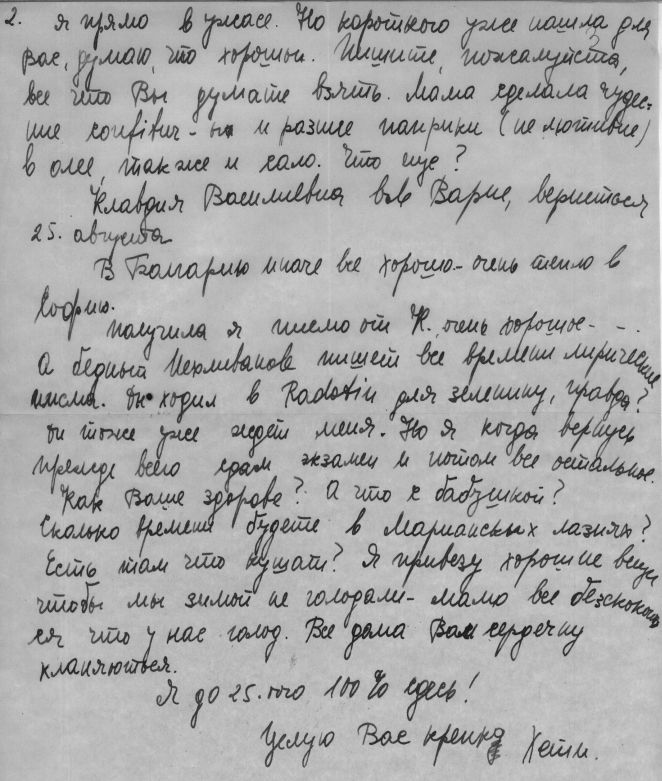 2. Я прямо в ужасе. Но короткого уже нашла для
Вас, думаю, что хорошои. Пишите, пожалуйста,
все что Вы думате взять. Мама сделала чудес-
ние confitur-ы и разние паприки (не лютивие)
в олее, также и сало. Что еще?
Клавдия Василиевна в Варне, вернеться
25. августа
В Болгарию иначе все хорошо - очень тепло в
Софию.
Получила я писмо от К. очень хорошое - - .
А бедный пишет все времени лирические
писма. Он ходил в Radotin для зеленину, правда?
Он тоже уже ждет меня. Но я когда вернусь
прежде всего сдам экзамен и потом все остальное.
Как Ваше здорове? А что с бабушкой?
Сколько времени будете в Марианскых лазнях?
Есть там что кушать? Я привезу хорошие вещи
чтобы мы зимой не голодали - мама все безспокоит
ся что у нас голод. Все дома Вам сердечну
кланяються.
Я до 25.того 100% здесь!
Целую Вас крепко Хети.